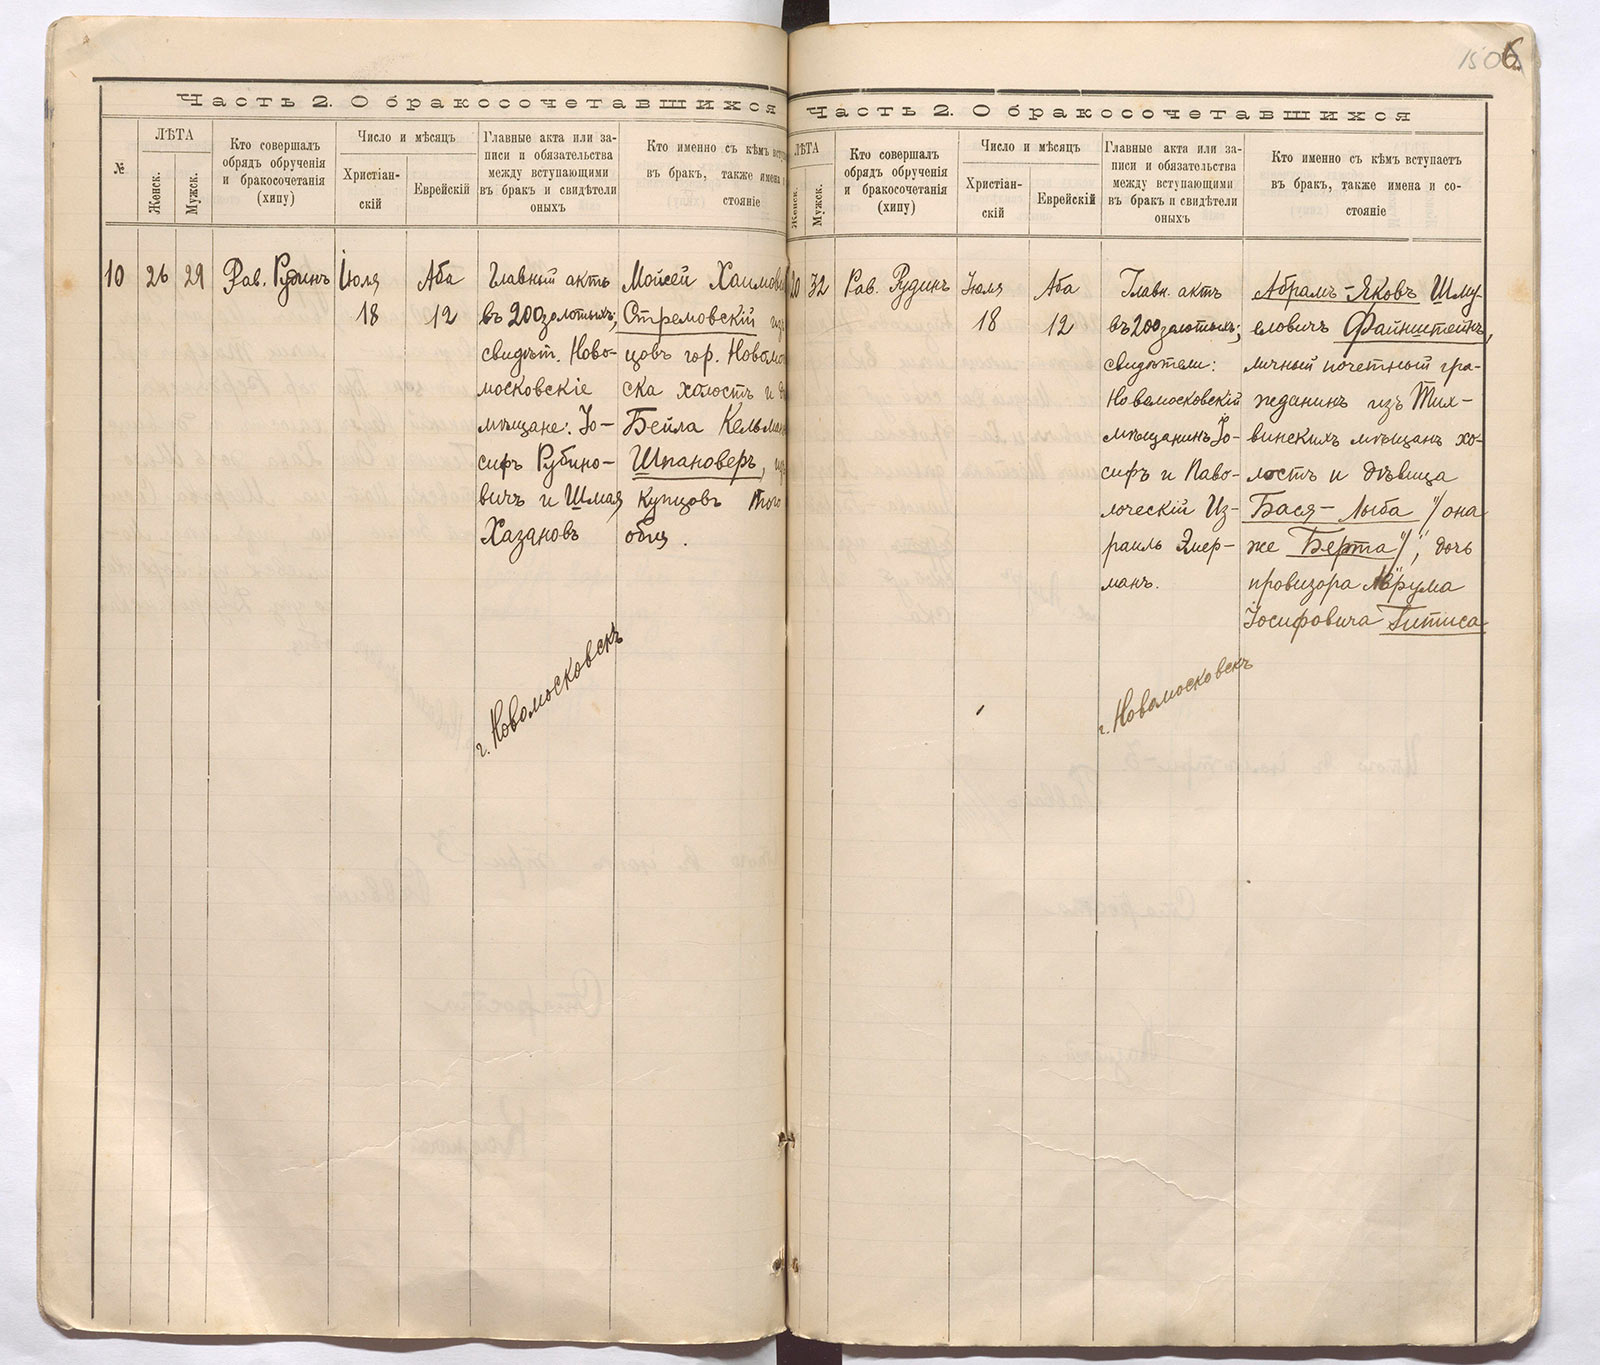 6
Часть 2. О бракосочетавшихся
№
ЛѢТА
Женск.
Мужск.
Кто совершалъ
обрядъ обрученія
и бракосочетанія
(хипу)
Число и мѣсяцъ
Христіан-
скій
Еврейскій
Главные акта или за-
писи и обязательства
между вступающими
въ бракъ и свидѣтели
оныхъ
Кто именно съ кѣмъ
въ бракъ, также имена
стояніе
10
26
29
Рав. Рубинъ
Іюля
18
Аба
12
Главный актъ
въ 200 золотыхъ;
свидѣт. Ново-
московскіе
мѣщане: Іо-
сифъ Рубино-
вичъ и Шмая
Хазановъ
г. Новомосковскъ
Мойсей
Стремовскій
цовъ гор.
ска холостъ и
Бейла
Шпановеръ,
купцовъ того
общ.
Часть 2. О бракосочетавшихся
ЛѢТА
Женск.
Мужск.
Кто совершалъ
обрядъ обрученія
и бракосочетанія
(хипу)
Число и мѣсяцъ
Христіан-
скій
Еврейскій
Главные акта или за-
писи и обязательства
между вступающими
въ бракъ и свидѣтели
оныхъ
Кто именно съ кѣмъ вступаетъ
въ бракъ, также имена и со-
стояніе
20
32
Рав. Рудинъ
Іюля
18
Аба
12
Главн. актъ
въ 200 золотыхъ;
свидѣтели:
Новомосковскій
мѣщанинъ Іо-
сифъ и Паво-
лочскій Из-
раиль
манъ.
г. Новомосковскъ
Абрамъ-Яковъ Шму-
еловичъ Файнштейнъ,
личный почетный гра-
жданинъ изъ Тих-
винскихъ мѣщанъ хо-
лостъ и дѣвица
Бася-Лыба "/она
же Берта"/, дочь
провизора Аврума
Іосифовича Гитиса